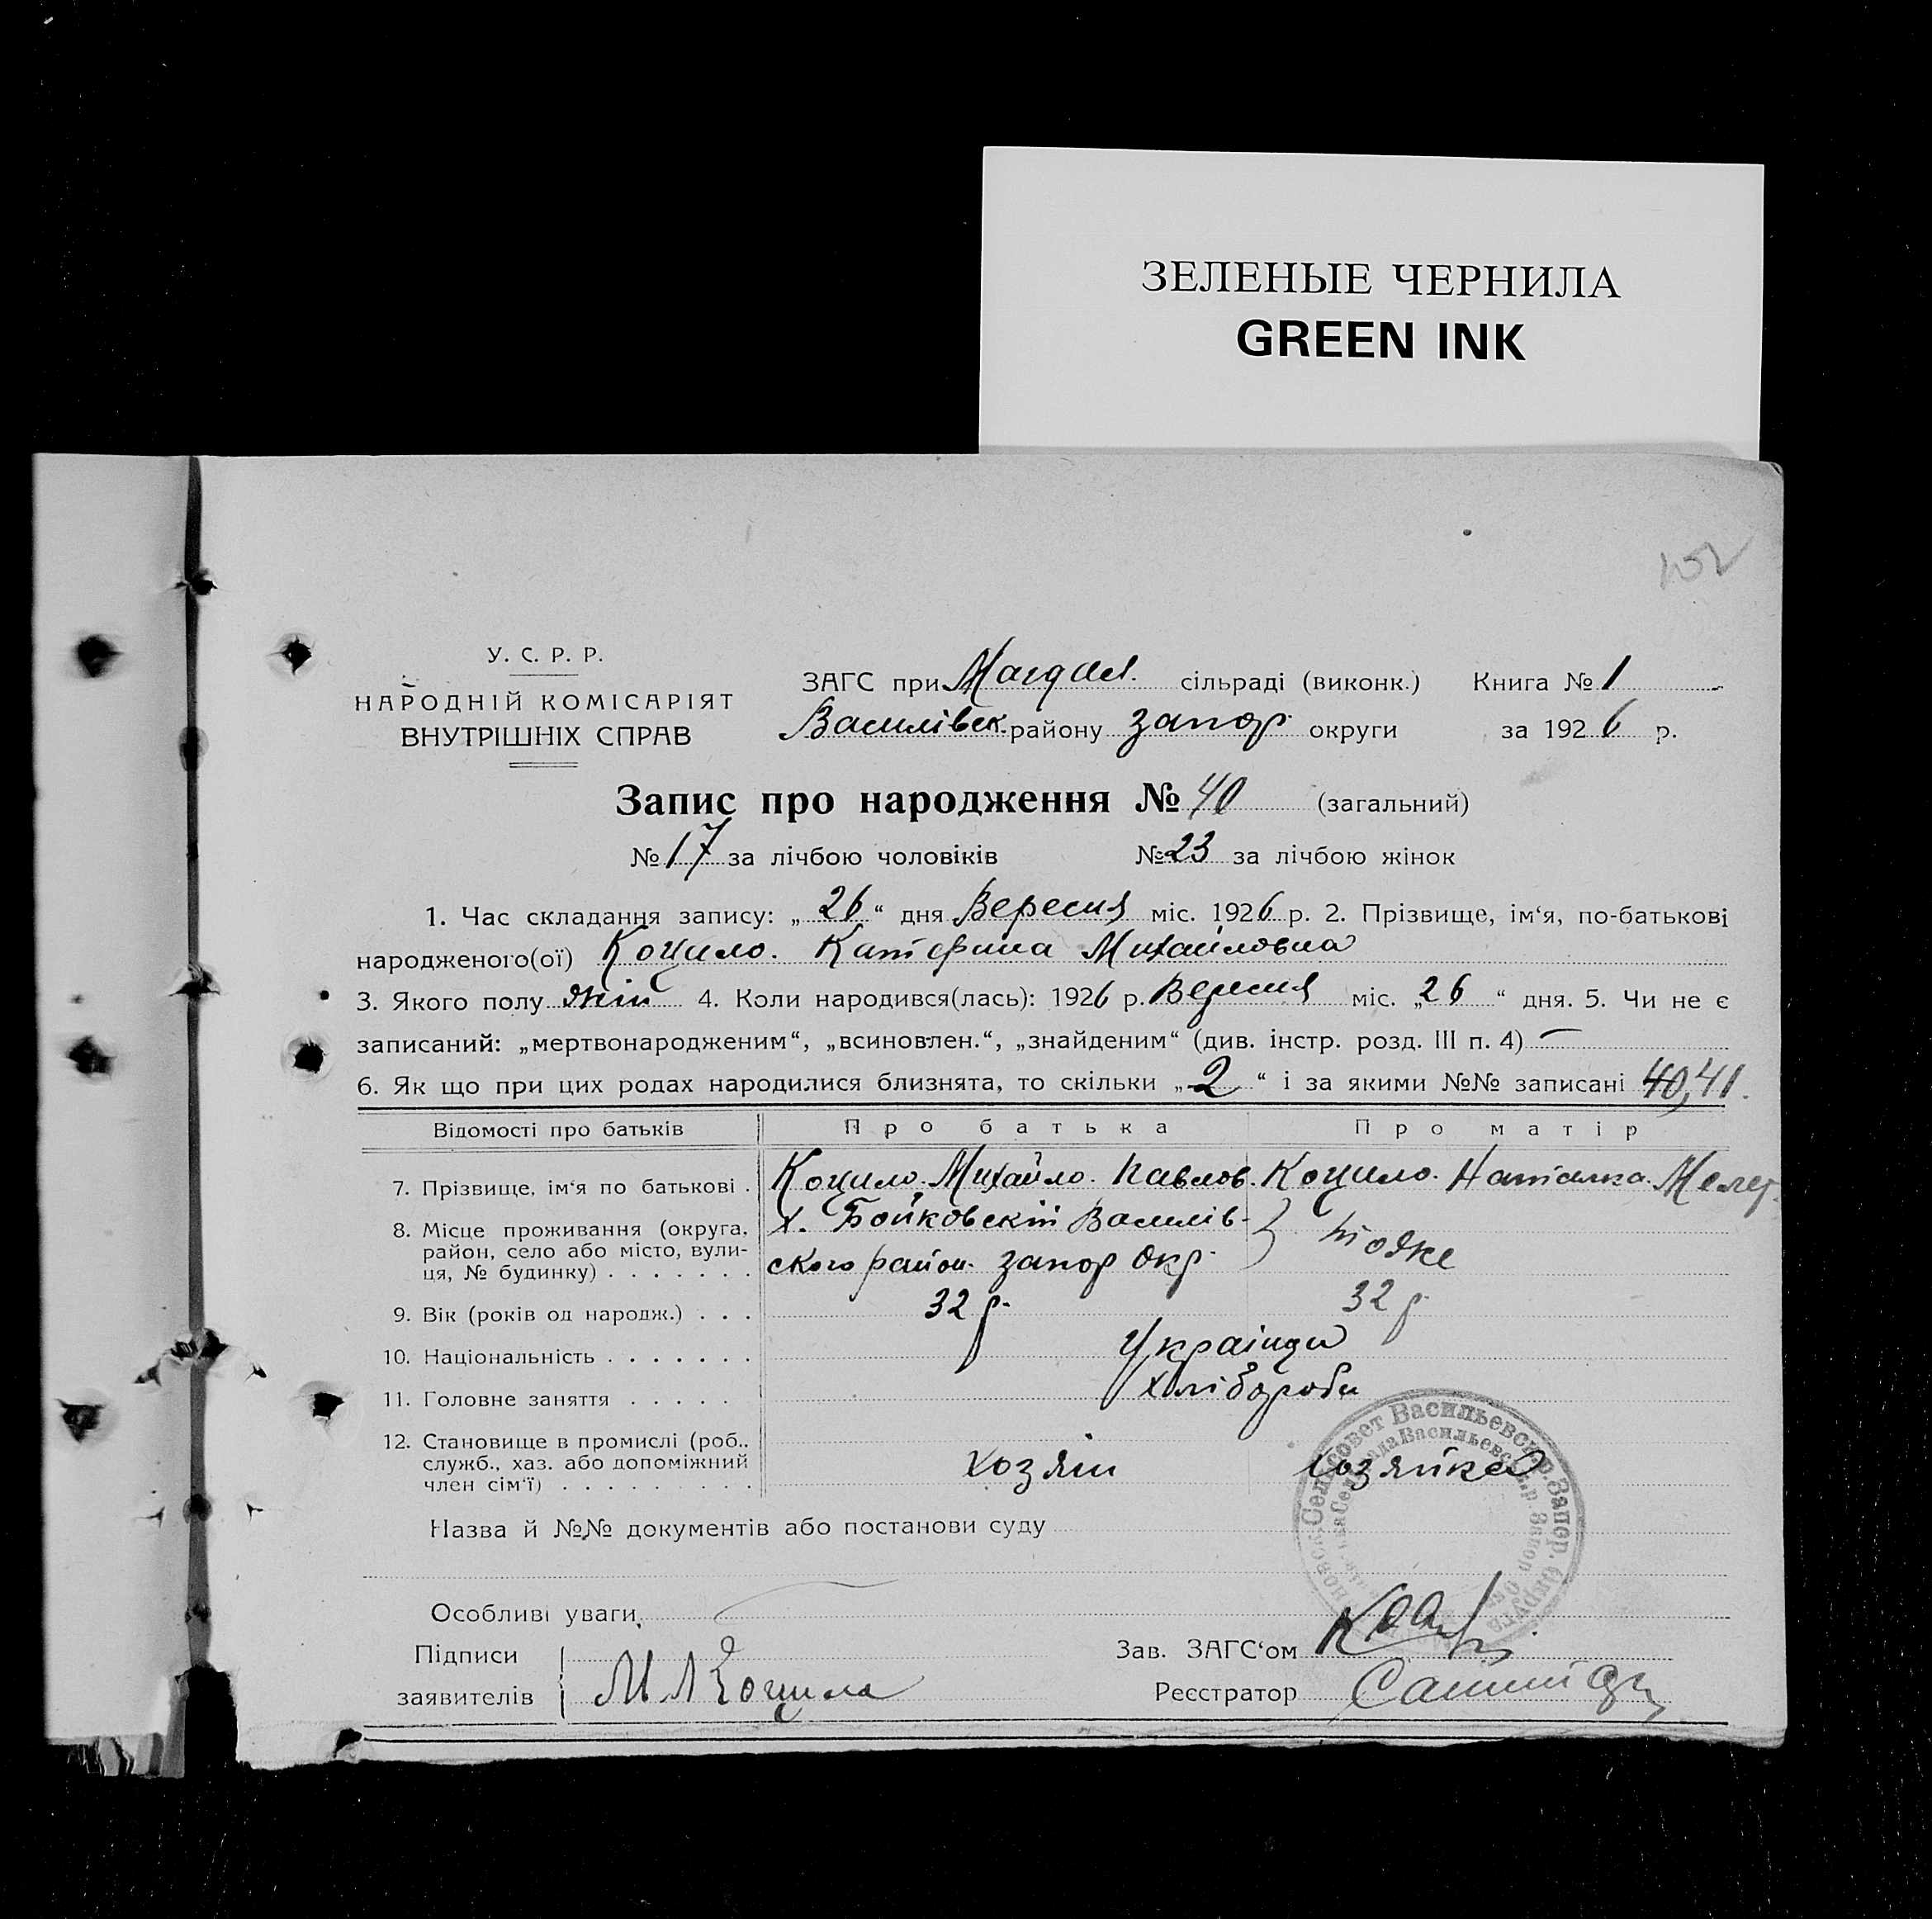 ЗЕЛЕНЫЕ ЧЕРНИЛА
GREEN INK
152
У. С. Р. Р.
НАРОДНІЙ КОМІСАРІЯТ
ВНУТРІШНІХ СПРАВ
ЗАГС при Магдал. сільраді (виконк.) Книга № 1
Василівск. району запор. округи за 1926 р.
Запис про народження № 40 (загальний)
№ 17 за лічбою чоловіків № 23 за лічбою жінок
1. Час складання запису: „26“ дня Вересня міс. 1926 р. 2. Прізвище, ім‘я, по-батькові
народженого(ої) Коцило. Катерина Михайловна
3. Якого полу жін 4. Коли народився(лась): 1926 р. Вересня міс. „26“ дня. 5. Чи не є
записаний: „мертвонародженим“, „всиновлен.“, „знайденим“ (див. інстр. розд. III п. 4) —
6. Як що при цих родах народилися близнята, то скільки „2“ і за якими №№ записані 40, 41.
Відомості про батьків Про батька Про матір
7. Прізвище, ім‘я по батькові . Коцило. Михайло. Павлов. Коцило. Наталка. Мелет.
8. Місце проживання (округа, район, село або місто, вули- ця, № будинку) . . . . . . . х. Бойковскій Василів- ского район. запор окр. тоже
9. Вік (років од народж.) . . . 32 р. 32 р.
10. Національність . . . . . . . Украінци
11. Головне заняття . . . . . Хлібороби
12. Становище в промислі (роб., служб., хаз. або допоміжний член сім‘ї) . . . . . . . . . хозяін хозяйка
Назва й №№ документів або постанови суду
Особливі уваги.
Підписи
заявителів М П Коцила
Зав. ЗАГС‘ом
Реєстратор
Сельсовет Васильевск. р. Запор. Округа